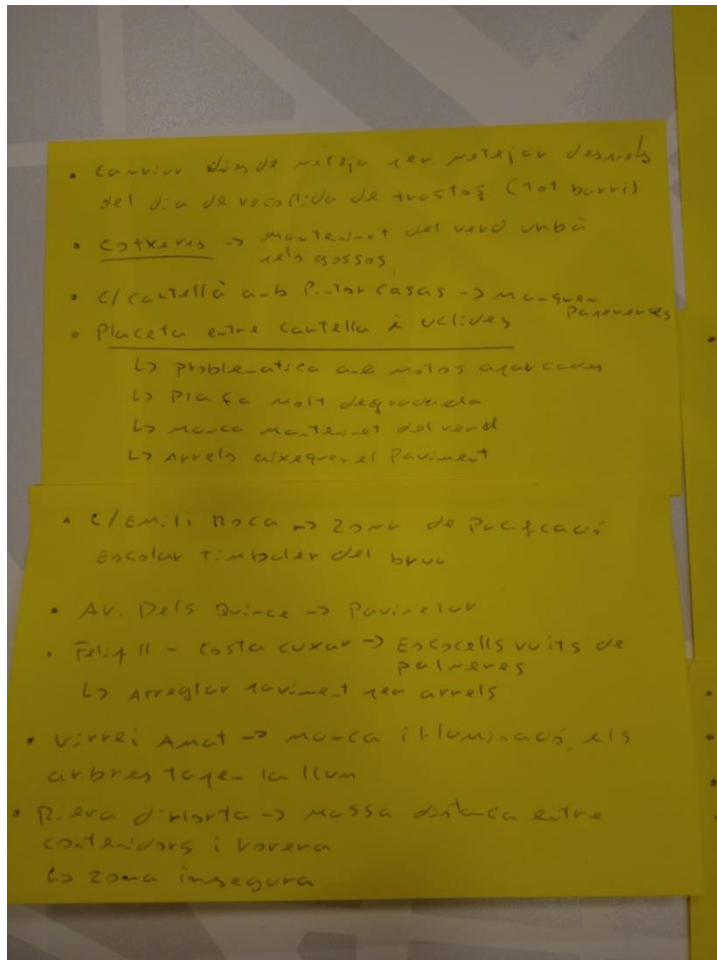 • Canviar dies de neteja per netejar després
del dia de recollida de trastos (tot barri)
• Cotxeres -> manteniment del verd urbà
pels gossos
• C/ Cartellà amb Pintor Casas -> Manquen
Papereres
• Placeta entre Cartellà i
↳ problematica amb motos aparcades
↳ Plaça molt degradada
↳ Manca manteniment del verd
↳ Arrels aixequen el Paviment
• C/ Emili Roca -> Zona de Pacificació
Escolar Timbaler del bruc
• Av. Dels Quinze -> Pavimentar
• Felip II - Costa Cuxar -> Escocells vuits de
palmeres
↳ Arreglar paviment per arrels
• Virrei Amat -> Manca il·luminació, els
arbres tapen la llum
• Riera d'Horta -> Massa distancia entre
contenidors i vorera
↳ Zona insegura